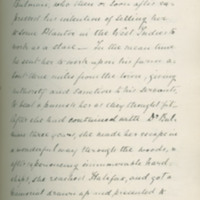 Bulman, who then or soon after ex-
pressed his intention of selling her
to some Planter in the West Indies to
work as a slave — In the mean time
he sent her to work upon his farm a
bout three miles from the town, giving
authority and sanction to his servants
to beat & punish her as they thought fit.
After she had continued with Dr Bul-
man three years, she made her escape in
a wonderful way through the woods, &
after experiencing innumerable hard-
ships, she reached Halifax, and got a
memorial drawn up and presented to